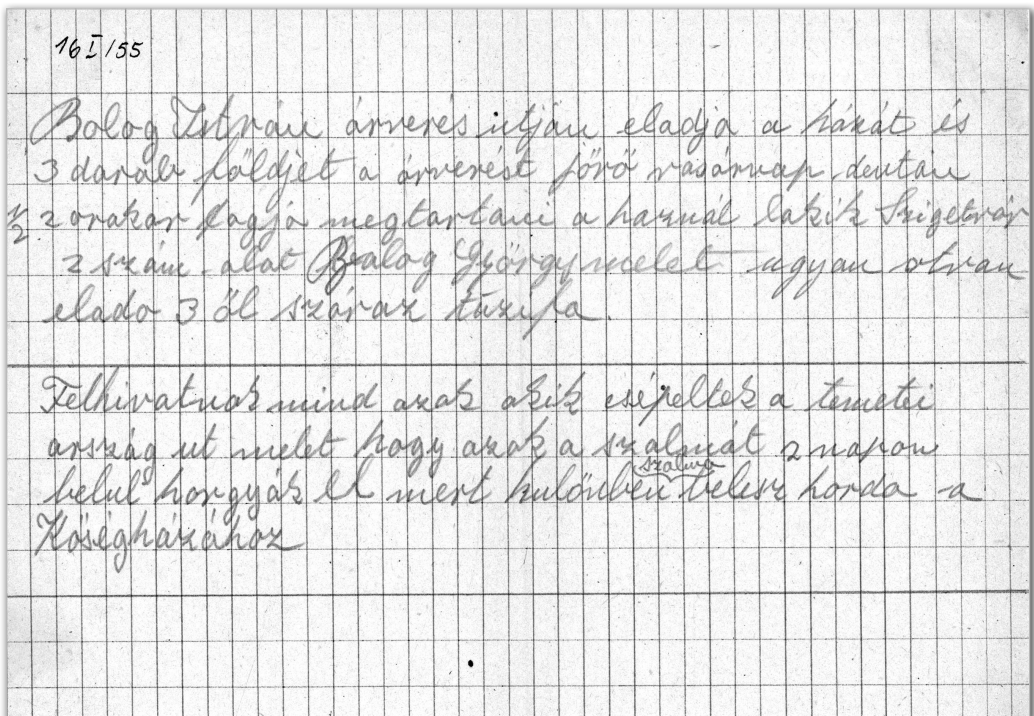 16 I/55
Bolog István árverés utján eladja a házát és
3 darab földjét a árverést jövő vasárnap deután
1/2 2 orakar fogja megtartani a haznál lakik Szigetvár
2 szám alat Balog György melet ugyan otvan
elado 3 öl száraz tüzifa.
Felhivatnak mind azok akik csépeltek a temetei
ország ut melet hogy azok a szalmát 2 napon
belul horgyák el mert kulönben szalma belesz horda a
Köségházához